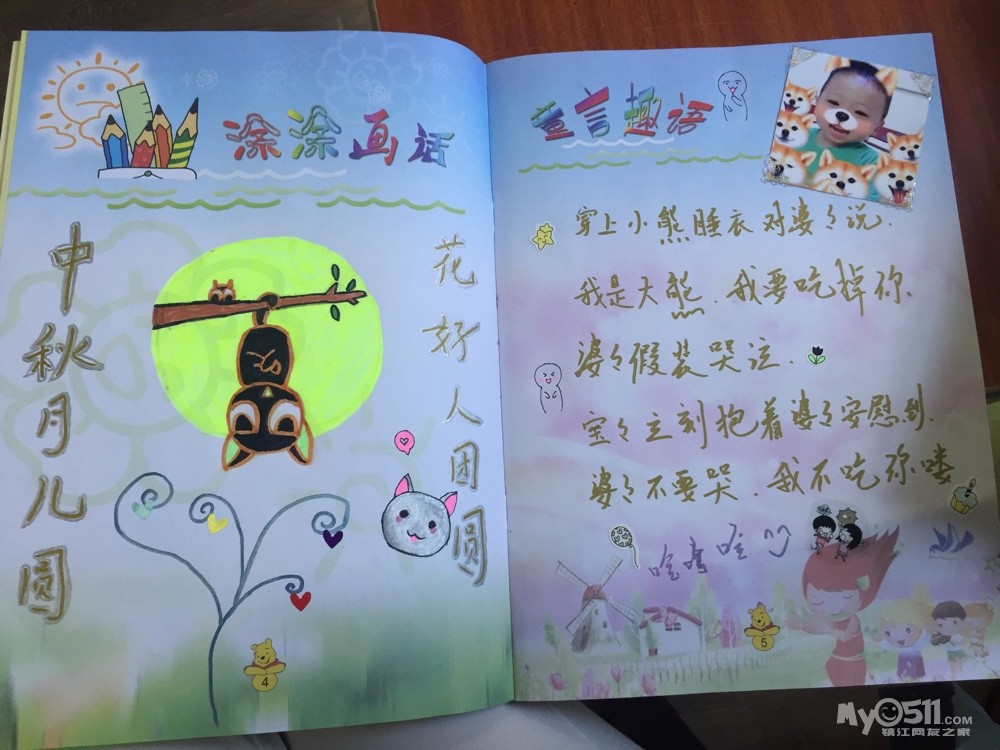 涂涂画话
中秋月儿圆
花好人团圆
4
童言趣语
穿上小熊睡衣对婆々说.
我是大熊.我要吃掉你.
婆々假装哭泣.
宝々立刻抱着婆々安慰到.
婆々不要哭.我不吃你喽
哈哈哈
5
My0511.COM
镇江网友之家